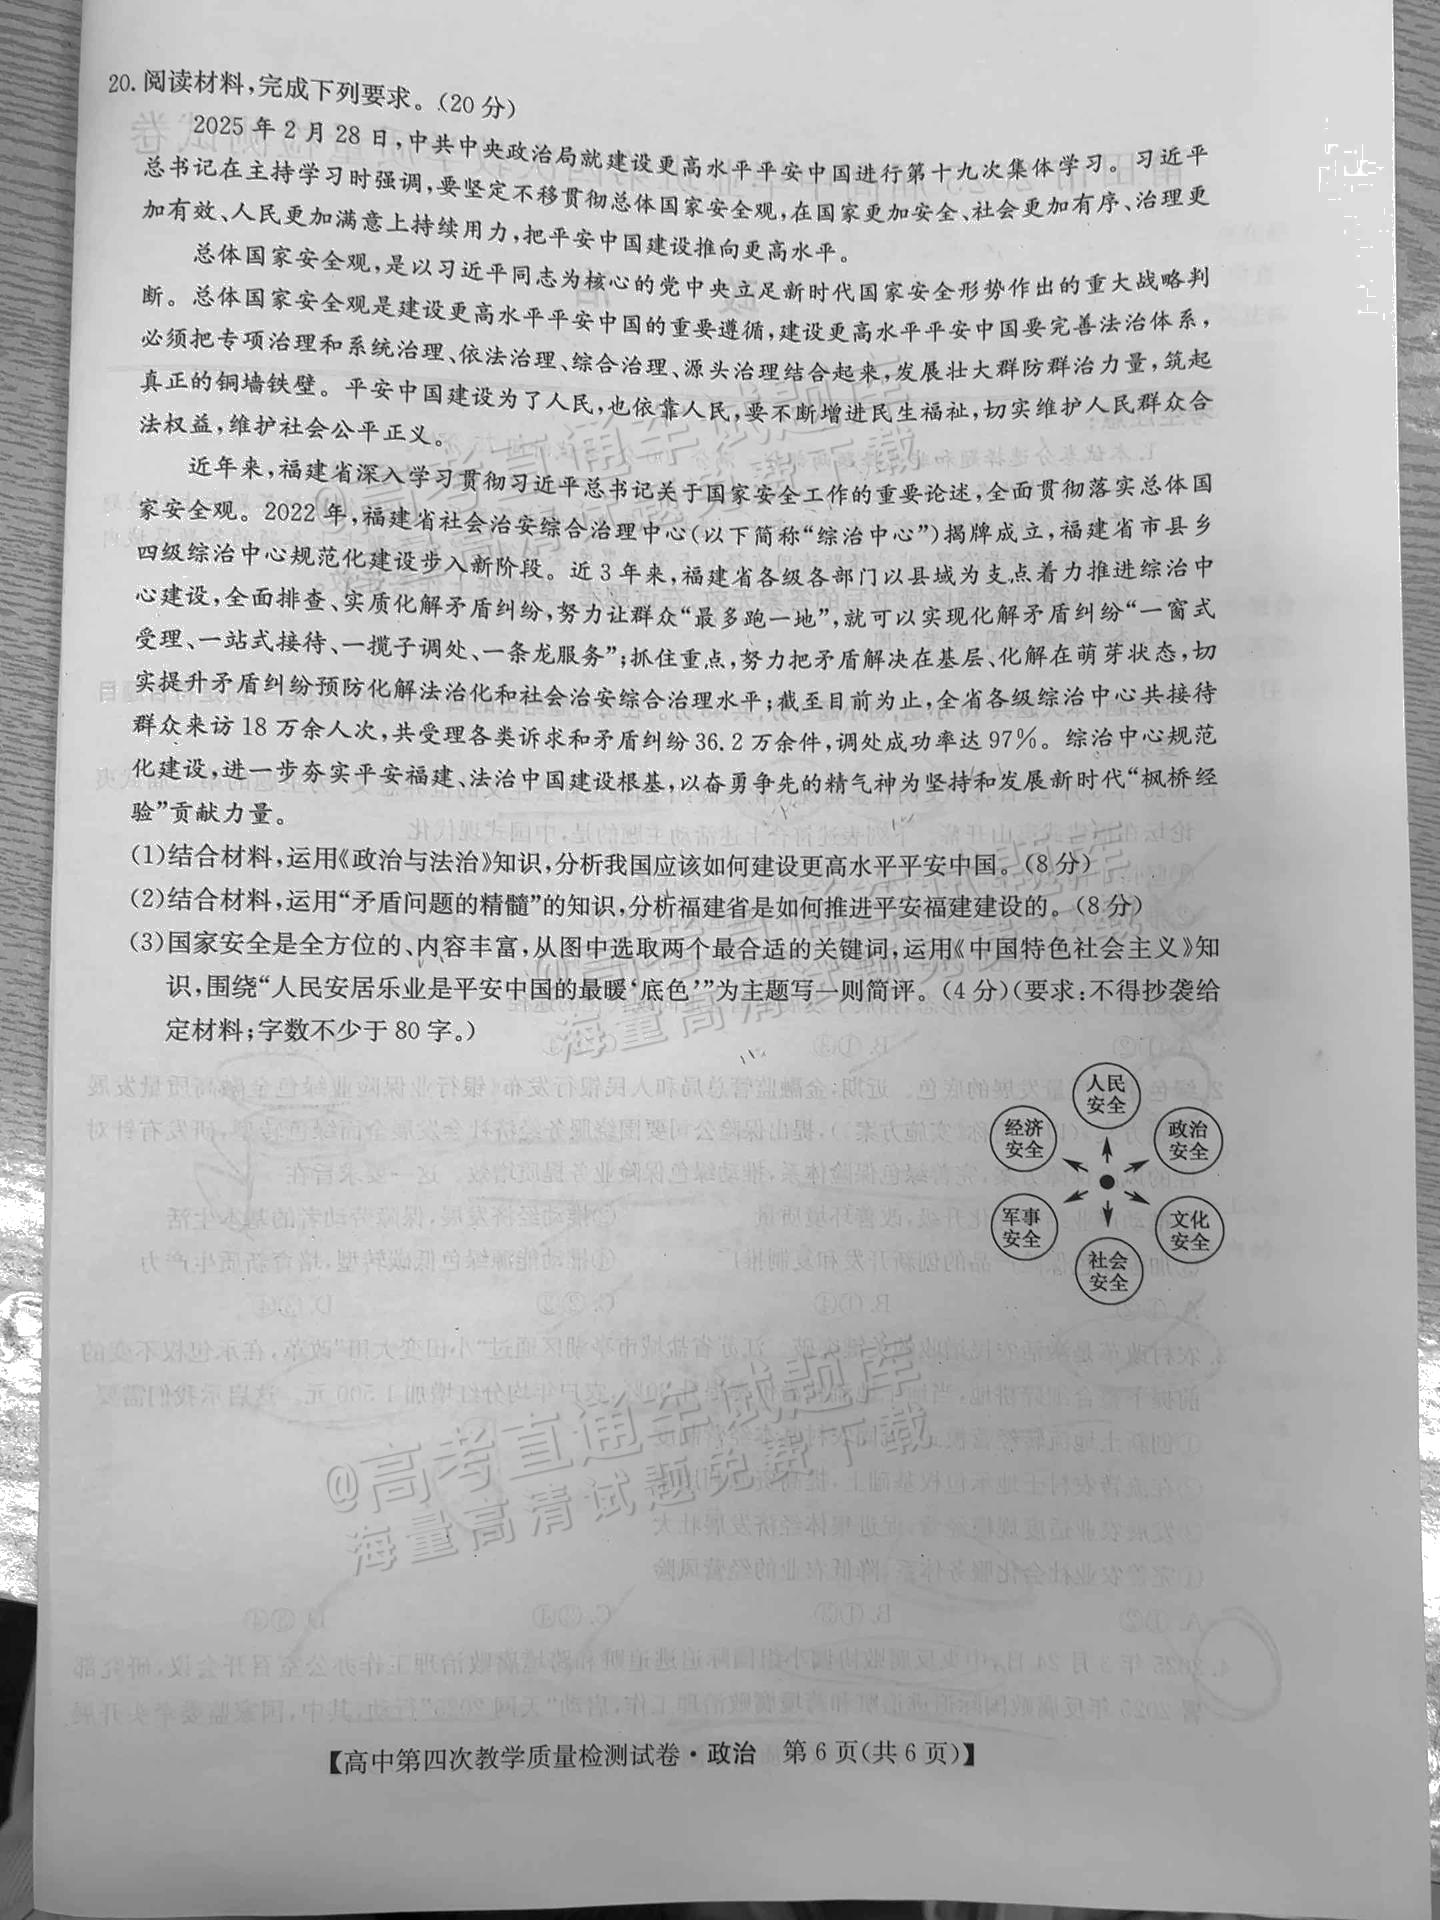 20. 阅读材料,完成下列要求。(20分)
2025年2月28日,中共中央政治局就建设更高水平平安中国进行第十九次集体学习。习近平
总书记在主持学习时强调,要坚定不移贯彻总体国家安全观,在国家更加安全、社会更加有序、治理更
加有效、人民更加满意上持续用力,把平安中国建设推向更高水平。
总体国家安全观,是以习近平同志为核心的党中央立足新时代国家安全形势作出的重大战略判
断。总体国家安全观是建设更高水平平安中国的重要遵循,建设更高水平平安中国要完善法治体系,
必须把专项治理和系统治理、依法治理、综合治理、源头治理结合起来,发展壮大群防群治力量,筑起
真正的铜墙铁壁。平安中国建设为了人民,也依靠人民,要不断增进民生福祉,切实维护人民群众合
法权益,维护社会公平正义。
近年来,福建省深入学习贯彻习近平总书记关于国家安全工作的重要论述,全面贯彻落实总体国
家安全观。2022年,福建省社会治安综合治理中心(以下简称“综治中心”)揭牌成立,福建省市县乡
四级综治中心规范化建设步入新阶段。近3年来,福建省各级各部门以县域为支点着力推进综治中
心建设,全面排查、实质化解矛盾纠纷,努力让群众“最多跑一地”,就可以实现化解矛盾纠纷“一窗式
受理、一站式接待、一揽子调处、一条龙服务”;抓住重点,努力把矛盾解决在基层、化解在萌芽状态,切
实提升矛盾纠纷预防化解法治化和社会治安综合治理水平;截至目前为止,全省各级综治中心共接待
群众来访18万余人次,共受理各类诉求和矛盾纠纷36.2万余件,调处成功率达97%。综治中心规范
化建设,进一步夯实平安福建、法治中国建设根基,以奋勇争先的精气神为坚持和发展新时代“枫桥经
验”贡献力量。
(1)结合材料,运用《政治与法治》知识,分析我国应该如何建设更高水平平安中国。(8分)
(2)结合材料,运用“矛盾问题的精髓”的知识,分析福建省是如何推进平安福建建设的。(8分)
(3)国家安全是全方位的、内容丰富,从图中选取两个最合适的关键词,运用《中国特色社会主义》知
识,围绕“人民安居乐业是平安中国的最暖‘底色’”为主题写一则简评。(4分)(要求:不得抄袭给
定材料;字数不少于80字。)
人民
安全
经济
安全
政治
安全
军事
安全
文化
安全
社会
安全
@高考直通车试题库
海量高清试题免费下载
【高中第四次教学质量检测试卷·政治 第6页(共6页)】